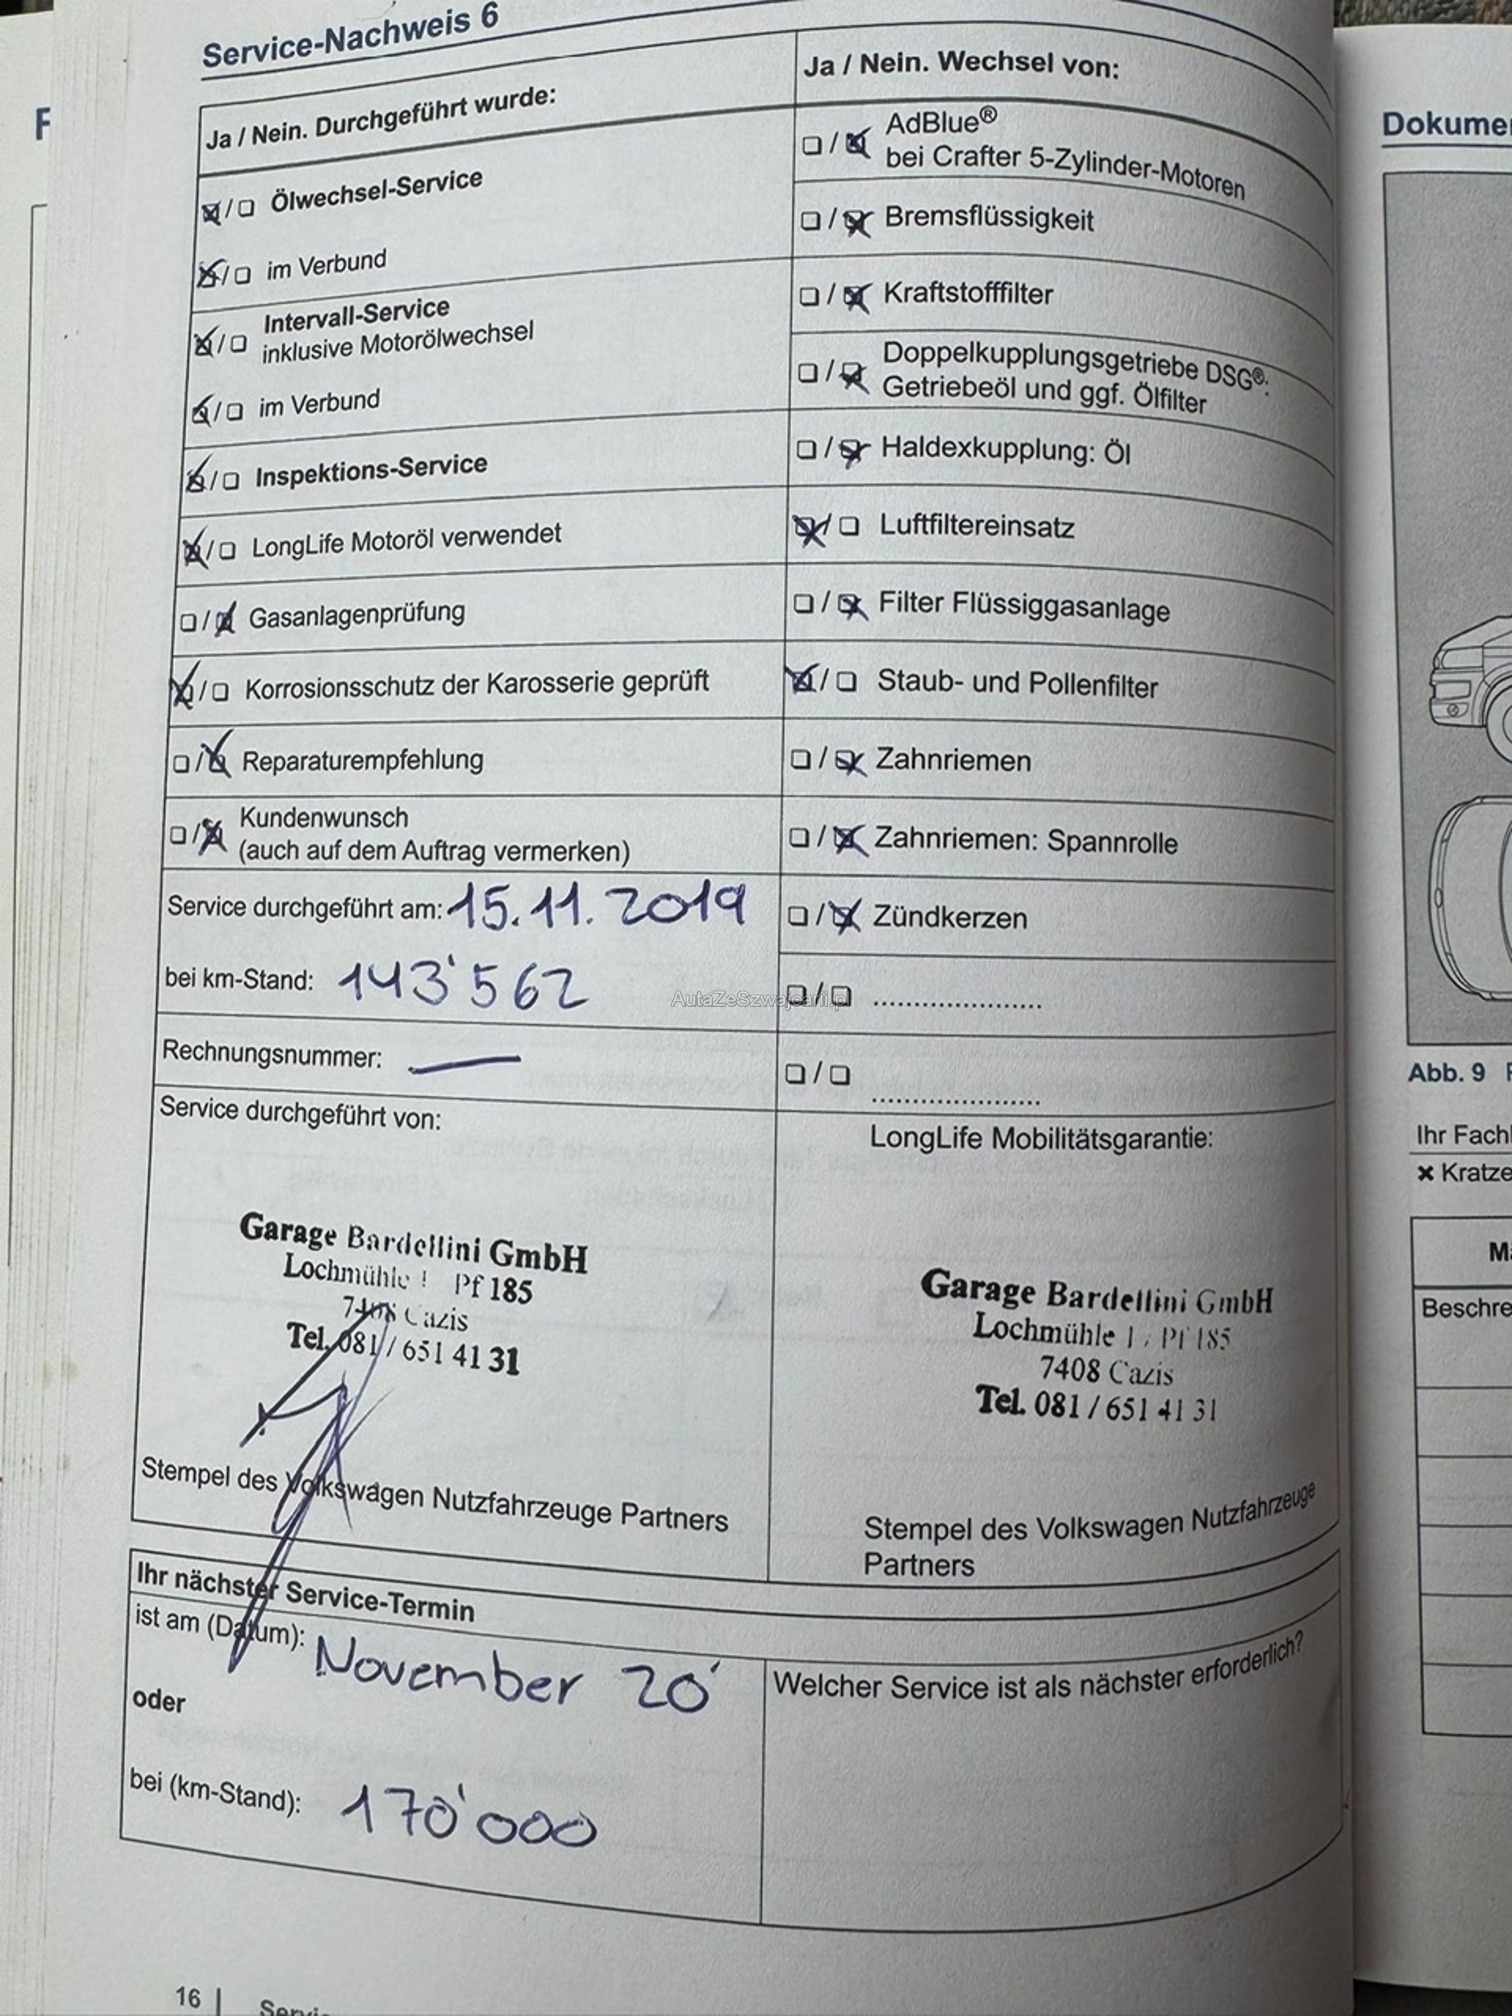 Service-Nachweis 6
Ja / Nein. Durchgeführt wurde:
☒/☐ Ölwechsel-Service
☒/☐ im Verbund
☒/☐ Intervall-Service
inklusive Motorölwechsel
☒/☐ im Verbund
☒/☐ Inspektions-Service
☒/☐ LongLife Motoröl verwendet
☐/☒ Gasanlagenprüfung
☒/☐ Korrosionsschutz der Karosserie geprüft
☐/☒ Reparaturempfehlung
☐/☒ Kundenwunsch
(auch auf dem Auftrag vermerken)
Service durchgeführt am: 15.11.2019
bei km-Stand: 143'562
Rechnungsnummer: —
Service durchgeführt von:
Garage Bardellini GmbH
Lochmühle 1 Pf 185
7408 Cazis
Tel. 081 / 651 41 31
Stempel des Volkswagen Nutzfahrzeuge Partners
Ja / Nein. Wechsel von:
☐/☒ AdBlue®
bei Crafter 5-Zylinder-Motoren
☐/☒ Bremsflüssigkeit
☐/☒ Kraftstofffilter
☐/☒ Doppelkupplungsgetriebe DSG®:
Getriebeöl und ggf. Ölfilter
☐/☒ Haldexkupplung: Öl
☒/☐ Luftfiltereinsatz
☐/☒ Filter Flüssiggasanlage
☒/☐ Staub- und Pollenfilter
☐/☒ Zahnriemen
☐/☒ Zahnriemen: Spannrolle
☐/☒ Zündkerzen
☐/☐ .....................
☐/☐ .....................
AutaZeSzwajcarii.pl
LongLife Mobilitätsgarantie:
Garage Bardellini GmbH
Lochmühle 1 / Pf 185
7408 Cazis
Tel. 081 / 651 41 31
Stempel des Volkswagen Nutzfahrzeuge
Partners
Ihr nächster Service-Termin
ist am (Datum): November 20'
oder
bei (km-Stand): 170'000
Welcher Service ist als nächster erforderlich?
16
F
Abb. 9
Ihr